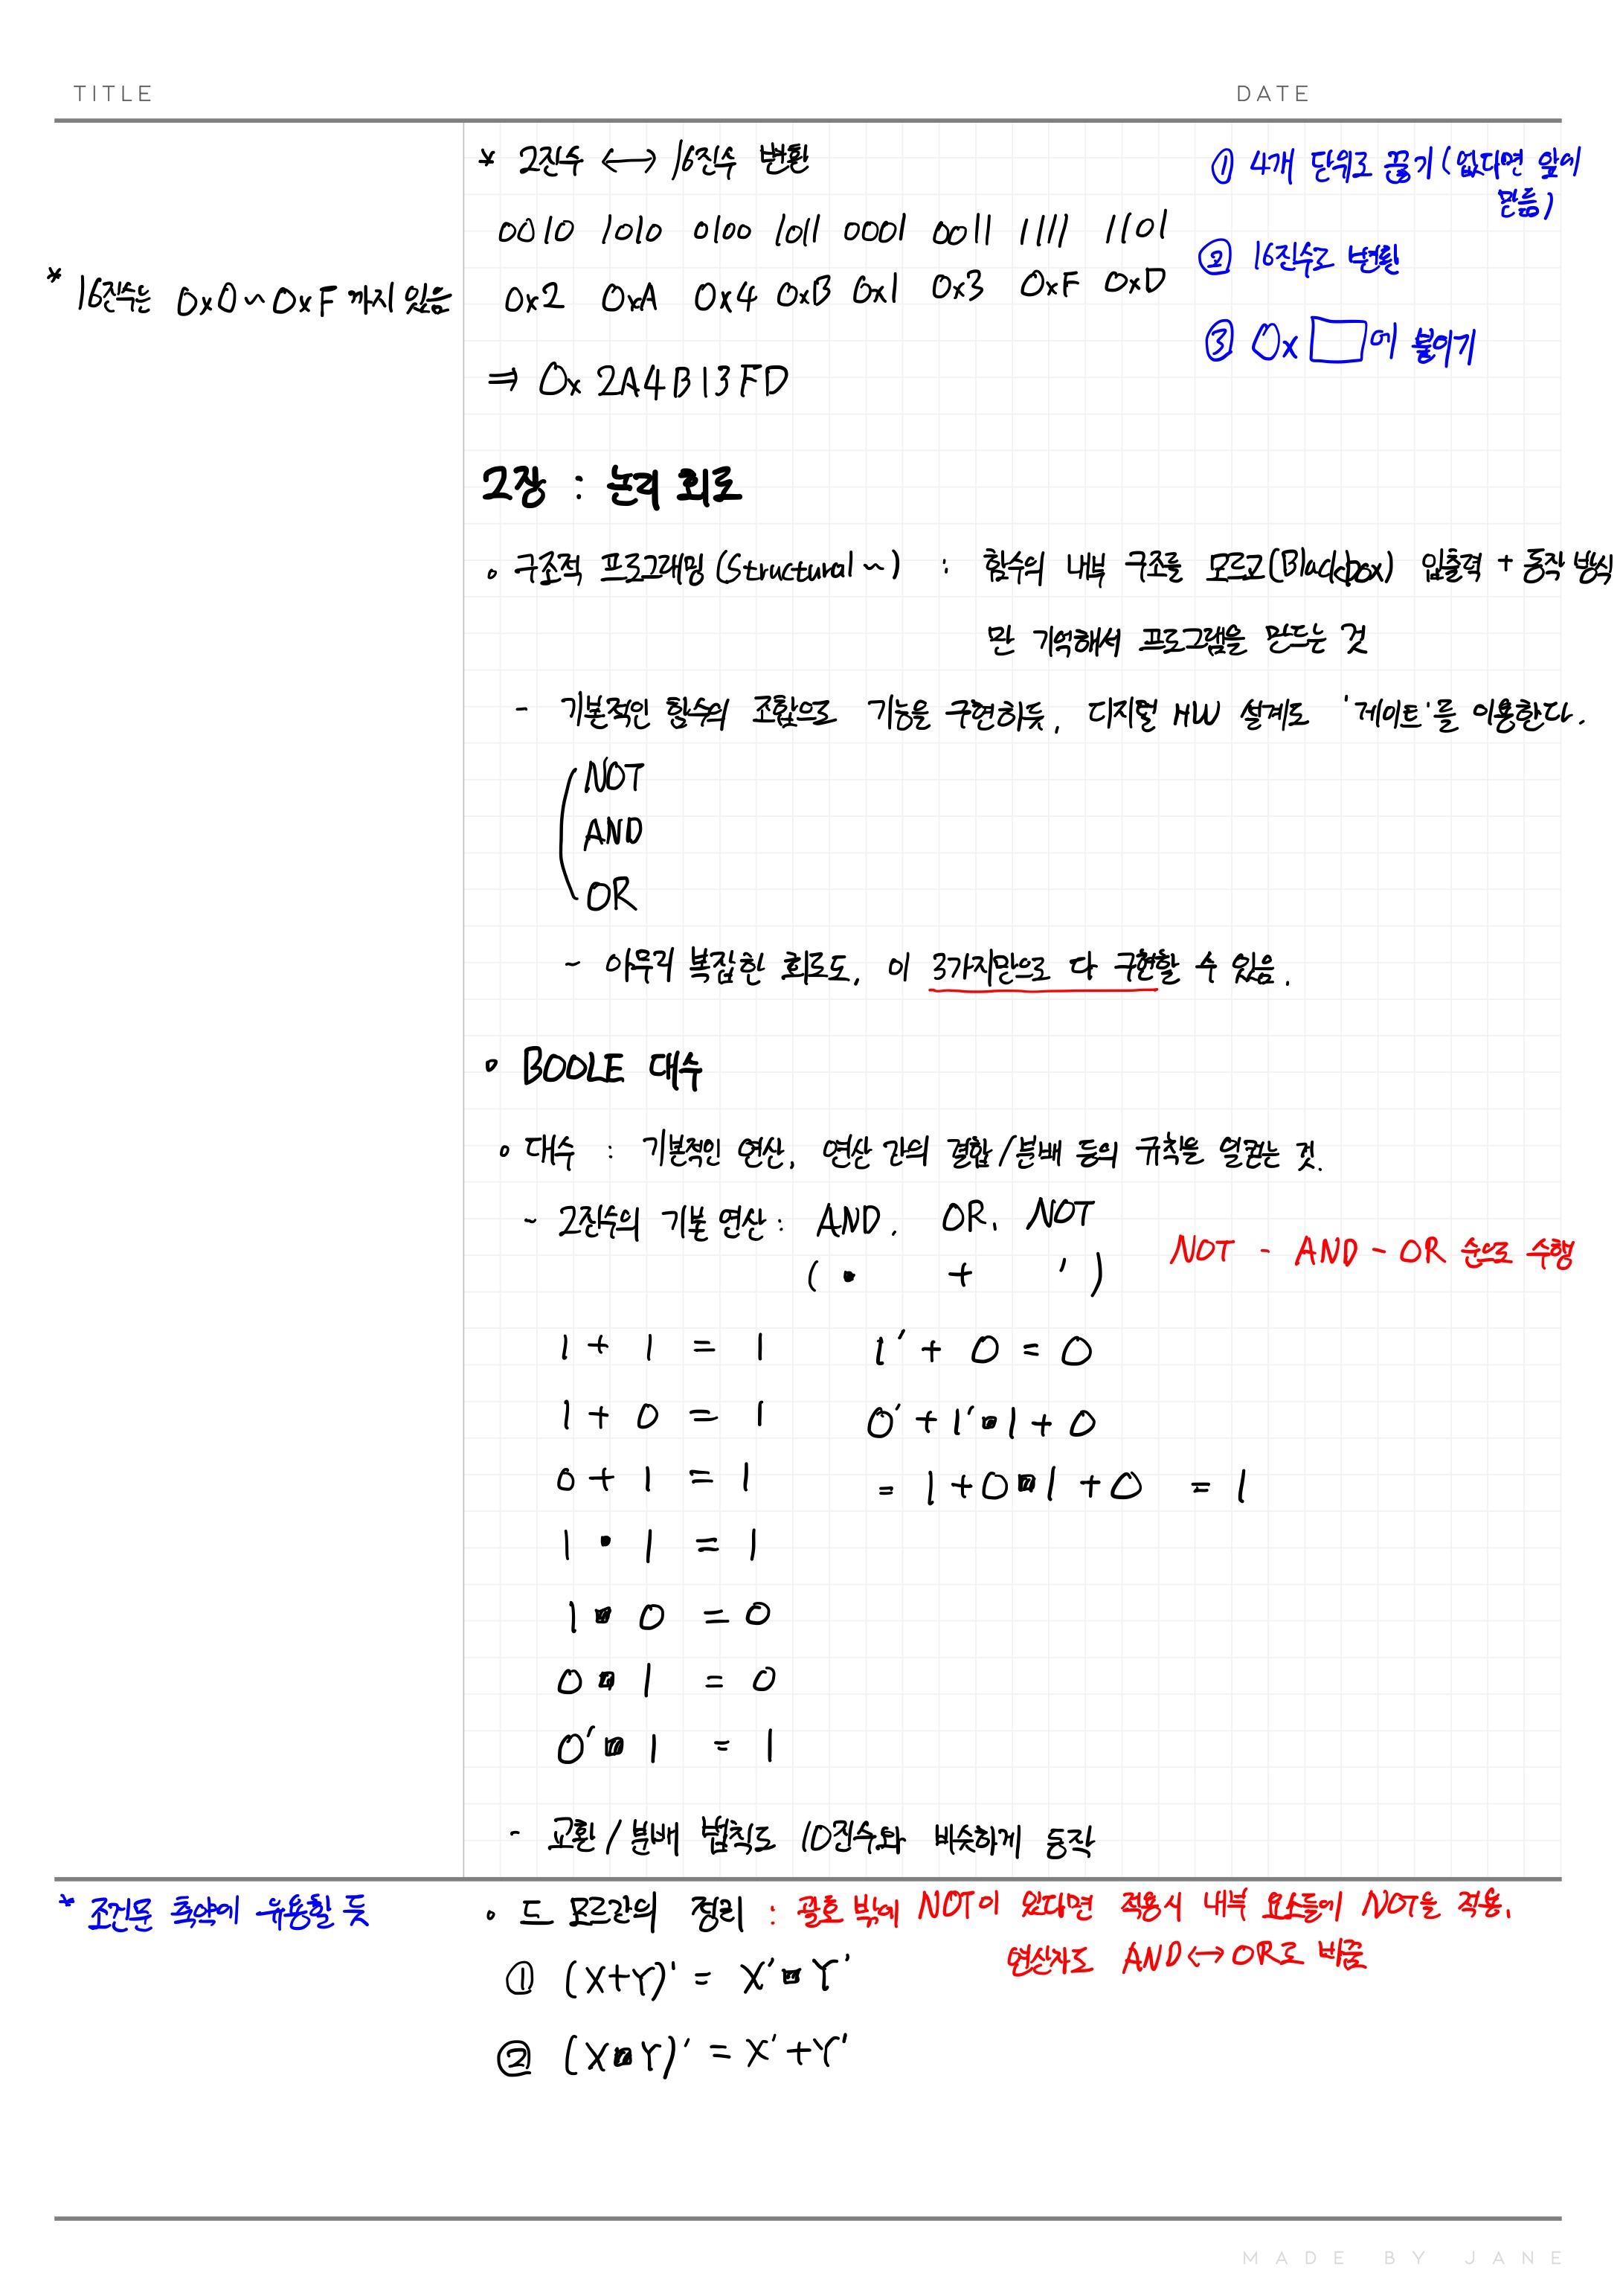 TITLE
DATE
* 2진수 ↔ 16진수 변환
① 4개 단위로 끊기 (없다면 앞에
만듦)
0010 1010 0100 1011 0001 0011 1111 1101
② 16진수로 변환
* 16진수는 0x0 ~ 0xF 까지 있음
0x2 0xA 0x4 0xB 0x1 0x3 0xF 0xD
③ 0x □에 붙이기
⇒ 0x 2A4B13FD
2장 : 논리 회로
∘ 구조적 프로그래밍 (Structural ~) : 함수의 내부 구조를 모르고(Blackbox) 입출력 + 동작 방식
만 기억해서 프로그램을 만드는 것
- 기본적인 함수의 조합으로 기능을 구현하듯, 디지털 HW 설계도 '게이트'를 이용한다.
NOT
AND
OR
~ 아무리 복잡한 회로도, 이 3가지만으로 다 구현할 수 있음.
∘ BOOLE 대수
∘ 대수 : 기본적인 연산, 연산 간의 결합/분배 등의 규칙을 일컫는 것.
~ 2진수의 기본 연산 : AND, OR, NOT
( • + ' )
NOT - AND - OR 순으로 수행
1 + 1 = 1
1' + 0 = 0
1 + 0 = 1
0' + 1' • 1 + 0
0 + 1 = 1
= 1 + 0 • 1 + 0 = 1
1 • 1 = 1
1 • 0 = 0
0 • 1 = 0
0' • 1 = 1
- 교환/분배 법칙도 10진수와 비슷하게 동작
* 조건문 축약에 유용할 듯
∘ 드 모르간의 정리 : 괄호 밖에 NOT이 있다면 적용시 내부 요소들에 NOT을 적용,
연산자도 AND ↔ OR로 바꿈
① (X+Y)' = X' • Y'
② (X • Y)' = X' + Y'
MADE BY JANE